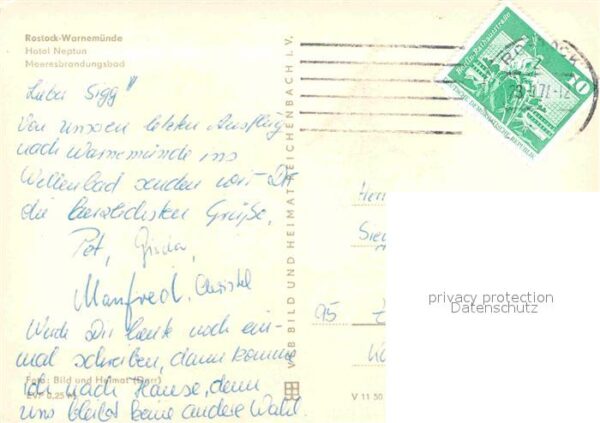 Rostock-Warnemünde
Hotel Neptun
Meeresbrandungsbad
Lieber Sigg
Von unseren letzten Ausflug
nach Warnemünde ins
Wellenbad senden wir Dir
die herzlichsten Grüße,
Pet,
Manfred, Christel
Werde Dir heute noch ein-
mal schreiben, dann komme
ich nach Hause, denn
uns bleibt keine andere Wahl.
Foto: Bild und Heimat (Darr)
EVP 0,25 M
VEB BILD UND HEIMAT REICHENBACH I. V.
V 11 50
Berlin, Rathausstraße
10
DEUTSCHE DEMOKRATISCHE REPUBLIK
95
privacy protection
Datenschutz